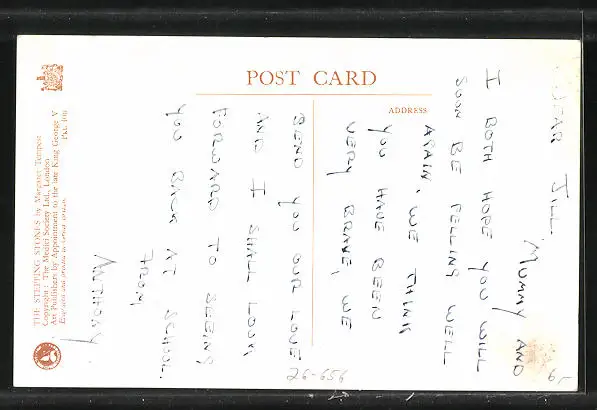 POST CARD
ADDRESS
THE STEPPING STONES by Margaret Tempest
Copyright: The Medici Society Ltd., London
Art Publishers by Appointment to the late King George V
Engraved and printed in Great Britain
DEAR JILL.
MUMMY AND
I BOTH HOPE YOU WILL
SOON BE FEELING WELL
AGAIN, WE THINK
YOU HAVE BEEN
VERY BRAVE, WE
SEND YOU OUR LOVE
AND I SHALL LOOK
FORWARD TO SEEING
YOU BACK AT SCHOOL.
FROM
ANTHONY.
26-656
6/-